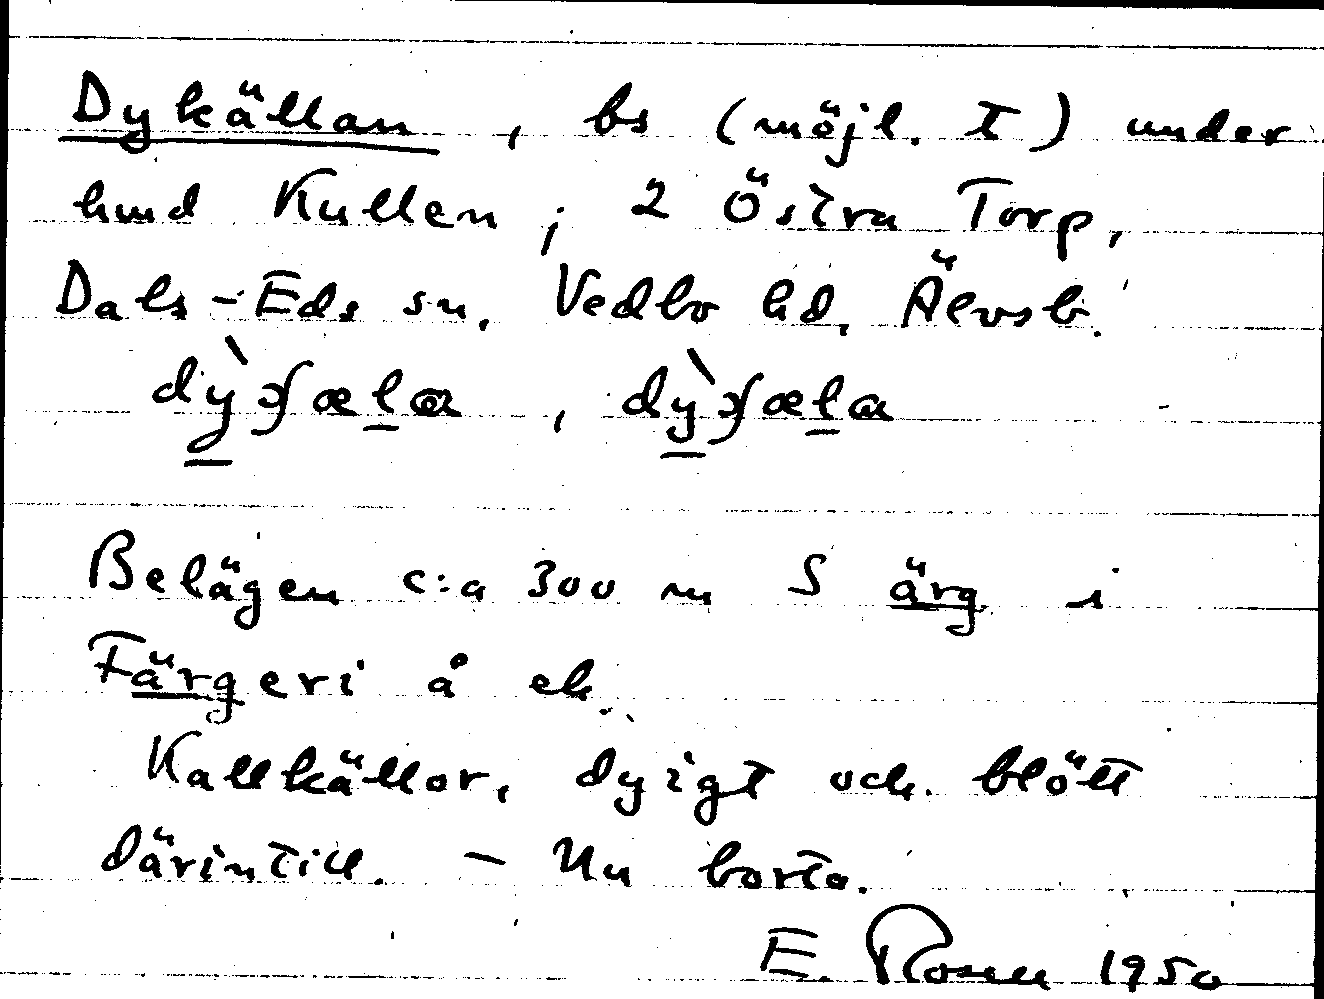 Dykällan, bs (möjl. t) under
hmd Kullen, 2 Östra Torp,
Dals-Eds sn, Vedbo hd, Älvsb.
Belägen c:a 300 m S ärg i
Färgeri å ek.
Kallkällor, dyigt och blött
därintill. – Nu borta.
E. Rosen 1950